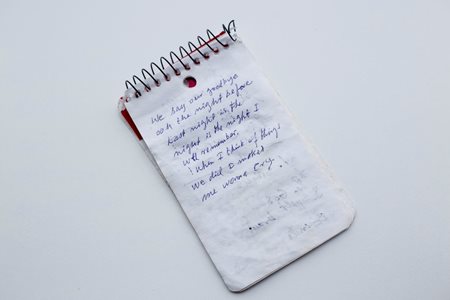 We say our goodbye
ooh the night before
Last night is the
night is the night I
will remember
! When I think of things
we did it makes
me wanna cry!